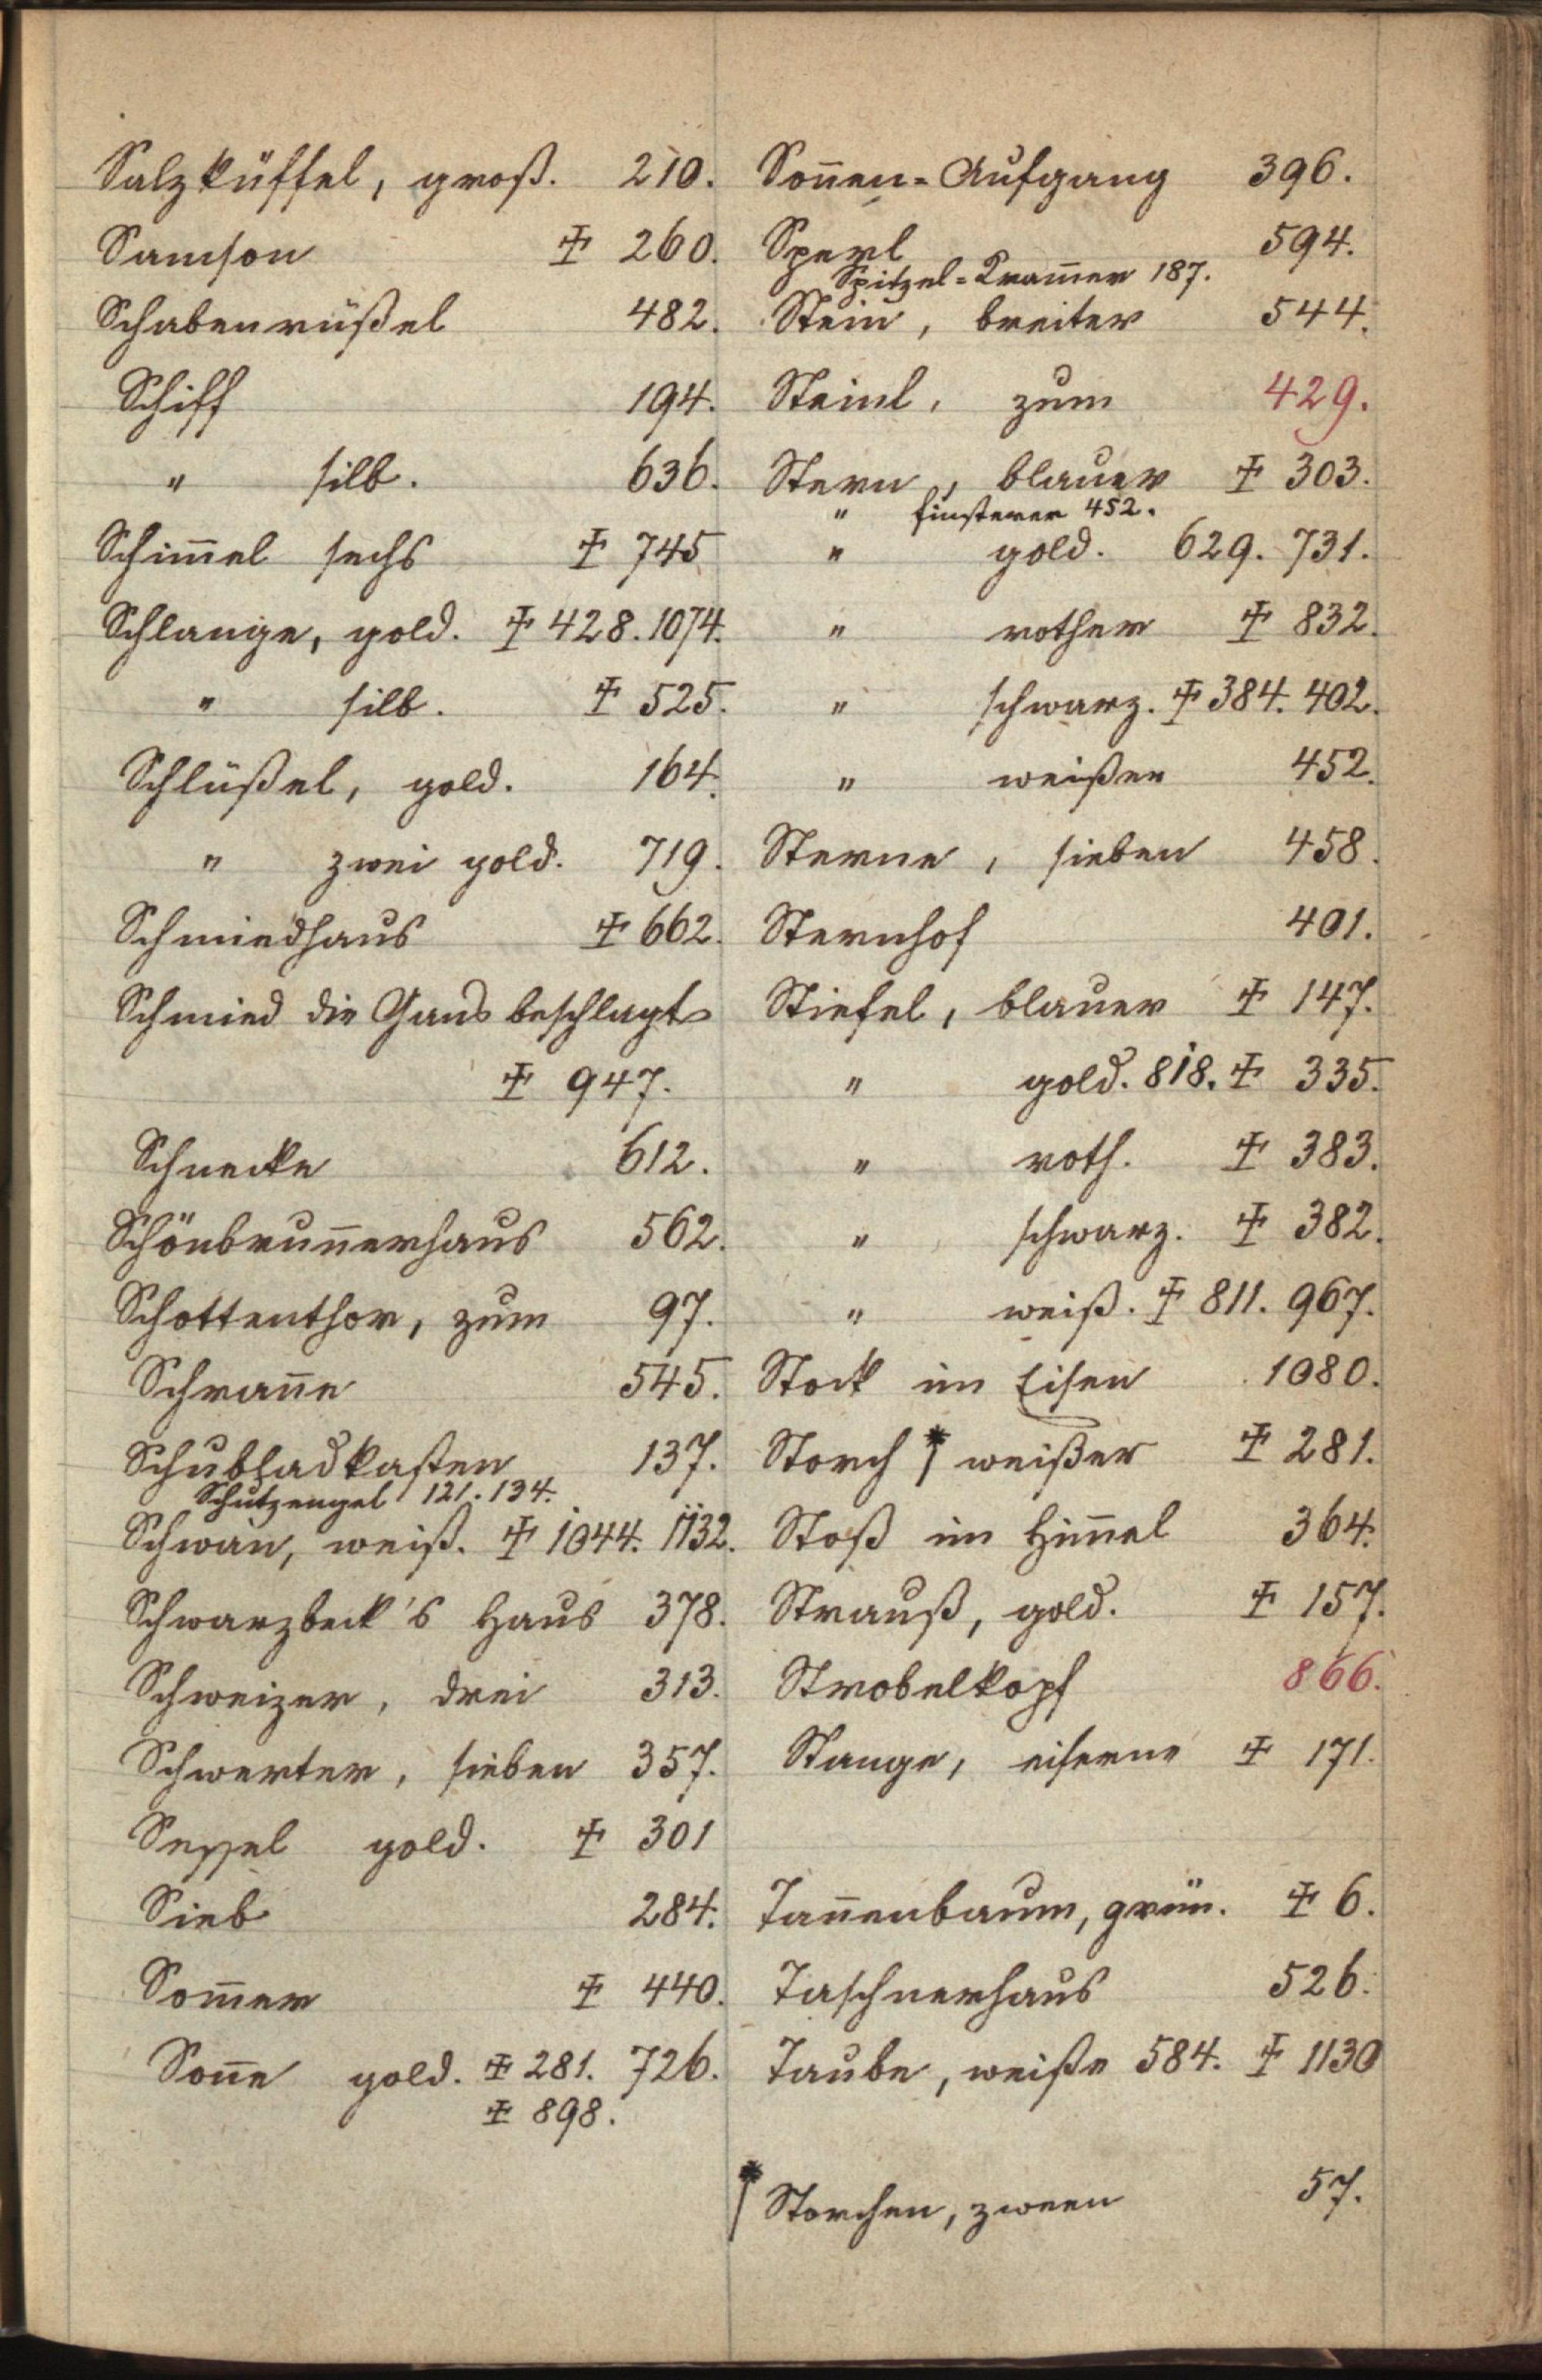 Salzküffel, groß. 210.
Samson ‡ 260.
Schabenrüßel 482.
Schiff 194.
" silb. 636.
Schim̄el sechs ‡ 745
Schlange, gold. ‡ 428. 1074.
" silb. ‡ 525.
Schlüßel, gold. 164.
" zwei gold. 719.
Schmiedhaus ‡ 662.
Schmied die Gans beschlagt
‡ 947.
Schnecke 612.
Schönbrun̄erhaus 562.
Schottenthor, zum 97.
Schran̄e 545.
Schubladkasten 137.
Schutzengel 121. 134.
Schwan, weiß. ‡ 1044. 1132.
Schwarzbeck's Haus 378.
Schweizer, drei 313.
Schwerter, sieben 357.
Sessel gold. ‡ 301
Sieb 284.
Som̄er ‡ 440.
Son̄e gold. ‡ 281. 726.
‡ 898.
Son̄en-Aufgang 396.
Sperl 594.
Spitzel-Kram̄er 187.
Stein, breiter 544.
Steinl, zum 429.
Stern, blauer ‡ 303.
" finsterer 452.
" gold. 629. 731.
" rother ‡ 832.
" schwarz. ‡ 384. 402.
" weißer 452.
Sterne, sieben 458.
Sternhof 401.
Stiefel, blauer ‡ 147.
" gold. 818. ‡ 335.
" roth. ‡ 383.
" schwarz. ‡ 382.
" weiß. ‡ 811. 967.
Stock im Eisen 1080.
Storch * weißer ‡ 281.
Stoß im Him̄el 364.
Strauß, gold. ‡ 157.
Strobelkopf 866.
Stange, eiserne ‡ 171.
Tan̄enbaum, grün. ‡ 6.
Taschnerhaus 526.
Taube, weiße 584. ‡ 1130
* Storchen, zween 57.